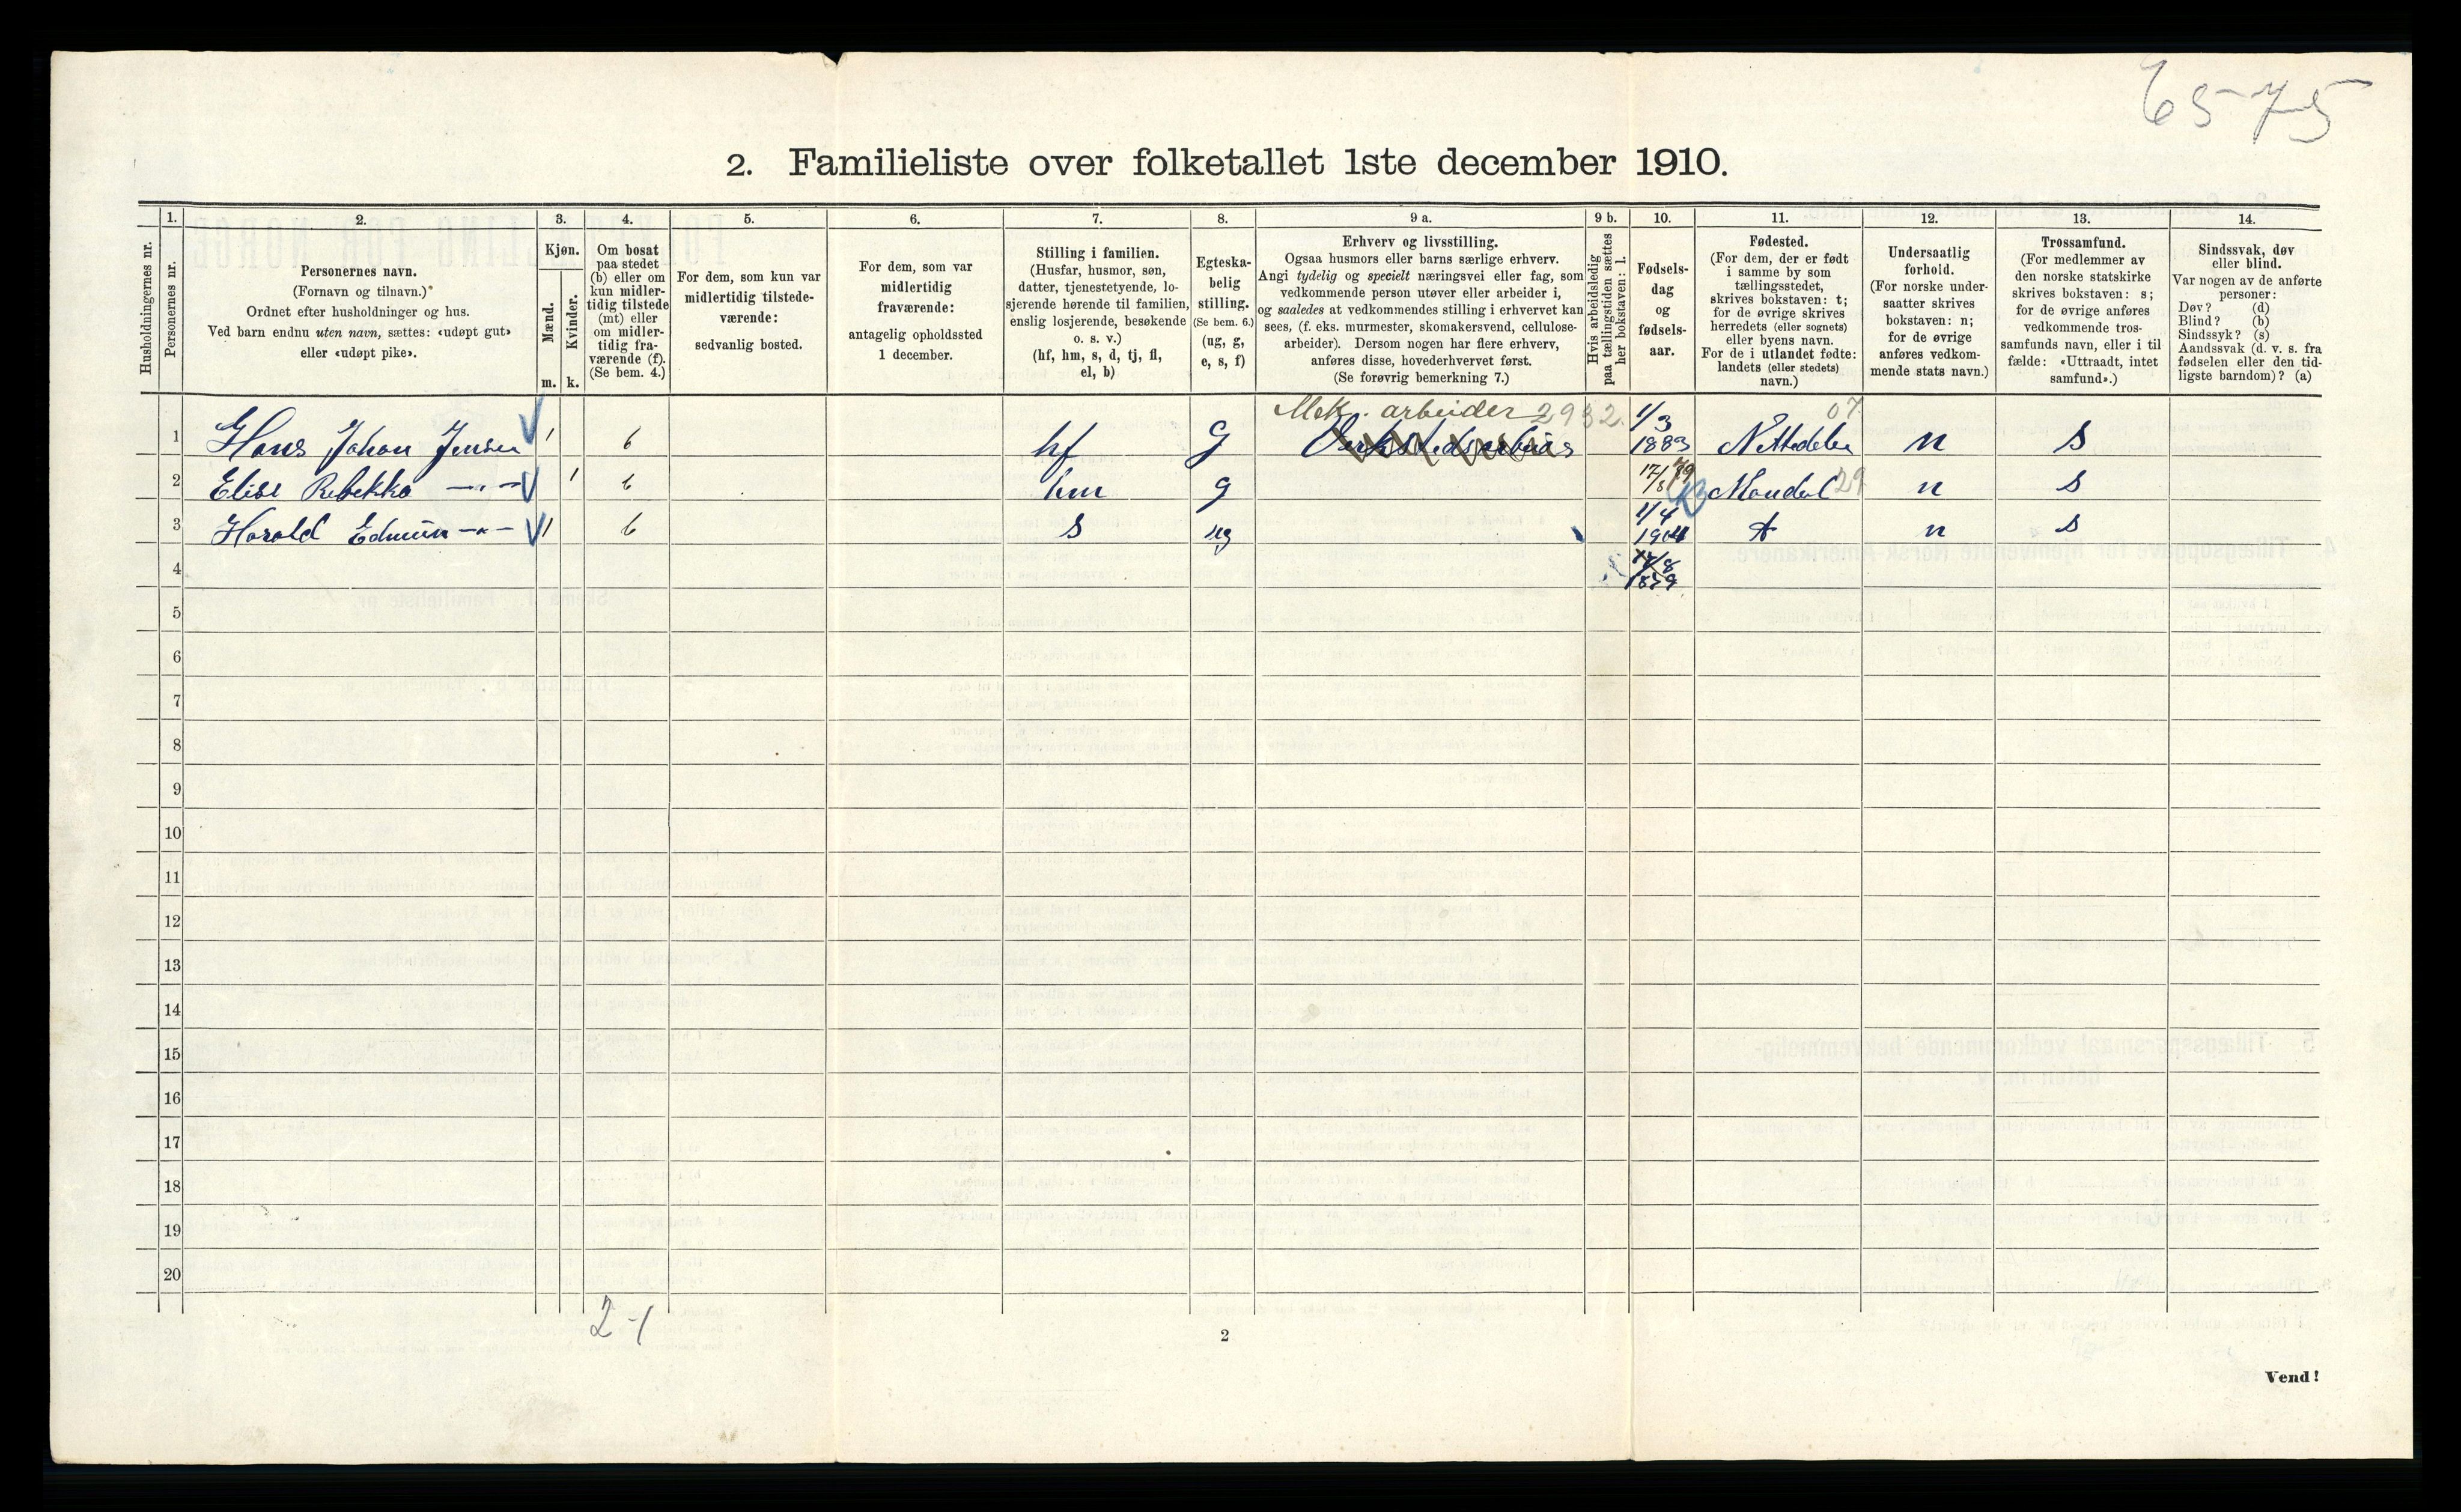 6575
2. Familieliste over folketallet 1ste december 1910.
Husholdningernes nr.
1.
Personernes nr.
2.
Personernes navn.
(Fornavn og tilnavn.)*
Ordnet efter husholdninger og hus.
Ved barn endnu uten navn, sættes: «udøpt gut»
eller «udøpt pike».
3.
Kjøn.
Mænd.
Kvinder.
m. k.
4.
Om bosat
paa stedet
(b) eller om
kun midler-
tidig tilstede
(mt) eller
om midler-
tidig fra-
værende (f).
(Se bem. 4.)
5.
For dem, som kun var
midlertidig tilstede-
værende:
sedvanlig bosted.
6.
For dem, som var
midlertidig
fraværende:
antagelig opholdssted
1 december.
7.
Stilling i familien.
(Husfar, husmor, søn,
datter, tjenestetyende, lo-
sjerende hørende til familien,
enslig losjerende, besøkende
o. s. v.)
(hf, hm, s, d, tj, fl,
el, b)
8.
Egteska-
belig
stilling.
(Se bem. 6.)
(ug, g,
e, s, f)
9 a.
Erhverv og livsstilling.
Ogsaa husmors eller barns særlige erhverv.
Angi tydelig og specielt næringsvei eller fag, som
vedkommende person utøver eller arbeider i,
og saaledes at vedkommendes stilling i erhvervet kan
sees, (f. eks. murmester, skomakersvend, cellulose-
arbeider). Dersom nogen har flere erhverv,
anføres disse, hovederhvervet først.
(Se forøvrig bemerkning 7.)
9 b.
Hvis arbeidsledig
paa tællingstiden sættes
her bokstaven: l.
10.
Fødsels-
dag
og
fødsels-
aar.
11.
Fødested.
(For dem, der er født
i samme by som
tællingsstedet,
skrives bokstaven: t;
for de øvrige skrives
herredets (eller sognets)
eller byens navn.
For de i utlandet fødte:
landets (eller stedets)
navn.)
12.
Undersaatlig
forhold.
(For norske under-
saatter skrives
bokstaven: n;
for de øvrige
anføres vedkom-
mende stats navn.)
13.
Trossamfund.
(For medlemmer av
den norske statskirke
skrives bokstaven: s;
for de øvrige anføres
vedkommende tros-
samfunds navn, eller i til
fælde: «Uttraadt, intet
samfund».)
14.
Sindssvak, døv
eller blind.
Var nogen av de anførte
personer:
Døv? (d)
Blind? (b)
Sindssyk? (s)
Aandssvak (d. v. s. fra
fødselen eller den tid-
ligste barndom)? (a)
Mek. arbeider 2932. 1/3 07
1 Hans Johan Jensen 1 b hf g 1883 n s
17/8 79
2 Elise Rebekka —"— 1 b hm g Mandal 29 n s
1/4
3 Harald Edmun —"— 1 b s ug t n s
4 17/8
1879
5
6
7
8
9
10
11
12
13
14
15
16
17
18
19
20
2-1
2
Vend!